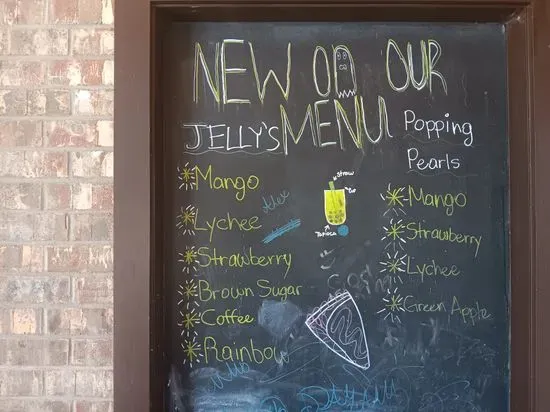 NEW ON OUR
MENU
JELLY'S
Mango
Lychee
Strawberry
Brown Sugar
Coffee
Rainbow
Straw
Cup
Tapioca
Popping
Pearls
Mango
Strawberry
Lychee
Green Apple